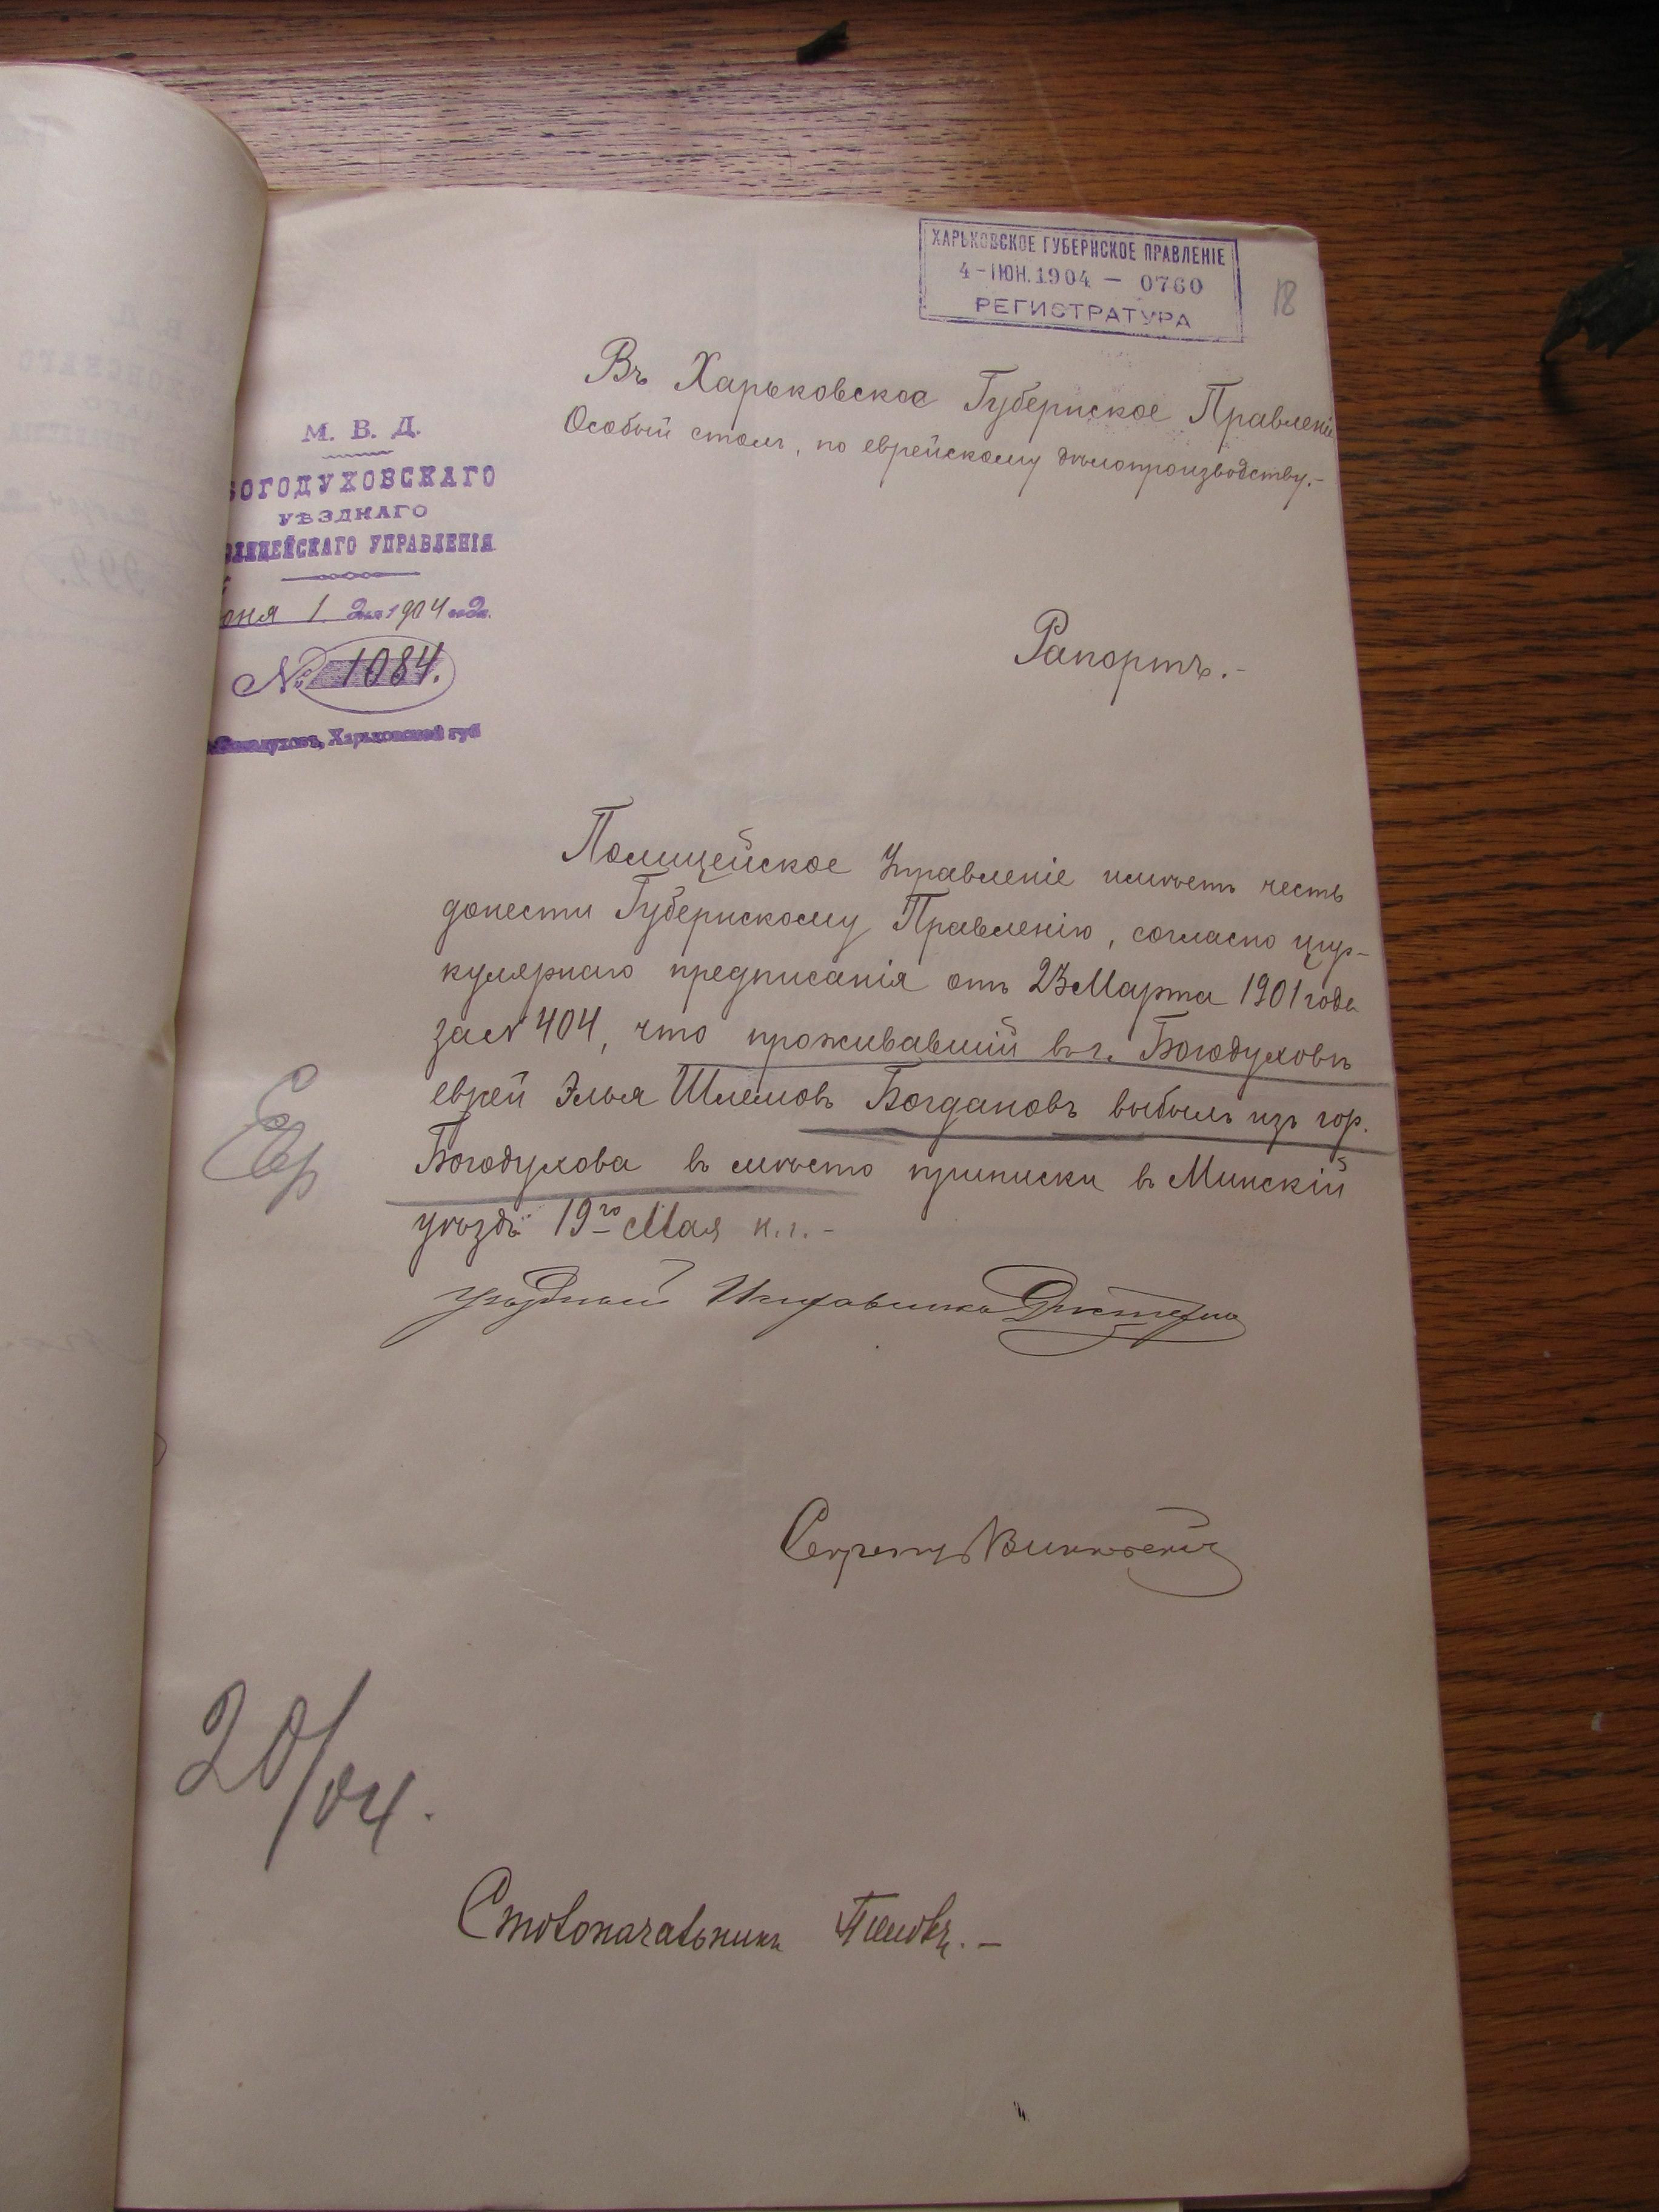 ХАРЬКОВСКОЕ ГУБЕРНСКОЕ ПРАВЛЕНІЕ
4-ІЮН.1904 — 0760
РЕГИСТРАТУРА
18
Въ Харьковское Губернское Правленіе
Особый столъ, по еврейскому дѣлопроизводству.-
М. В. Д.
БОГОДУХОВСКАГО
УѢЗДНАГО
ПОЛИЦЕЙСКАГО УПРАВЛЕНІЯ
юня 1 дня 1904 года.
№ 1084.
Богодуховъ, Харьковской губ
Рапортъ.-
Полицейское Управленіе имѣетъ честь
донести Губернскому Правленію, согласно цир-
кулярнаго предписанія отъ 23 Марта 1901 года
за № 404, что проживавшій въ г. Богодуховѣ
еврей Элья Шлемовъ Богдановъ выбылъ изъ гор.
Богодухова въ мѣсто приписки въ Минскій
уѣздъ 19го Мая н.г.-
Евр
Уѣздный Исправникъ
Секретарь
20/04.
Столоначальникъ